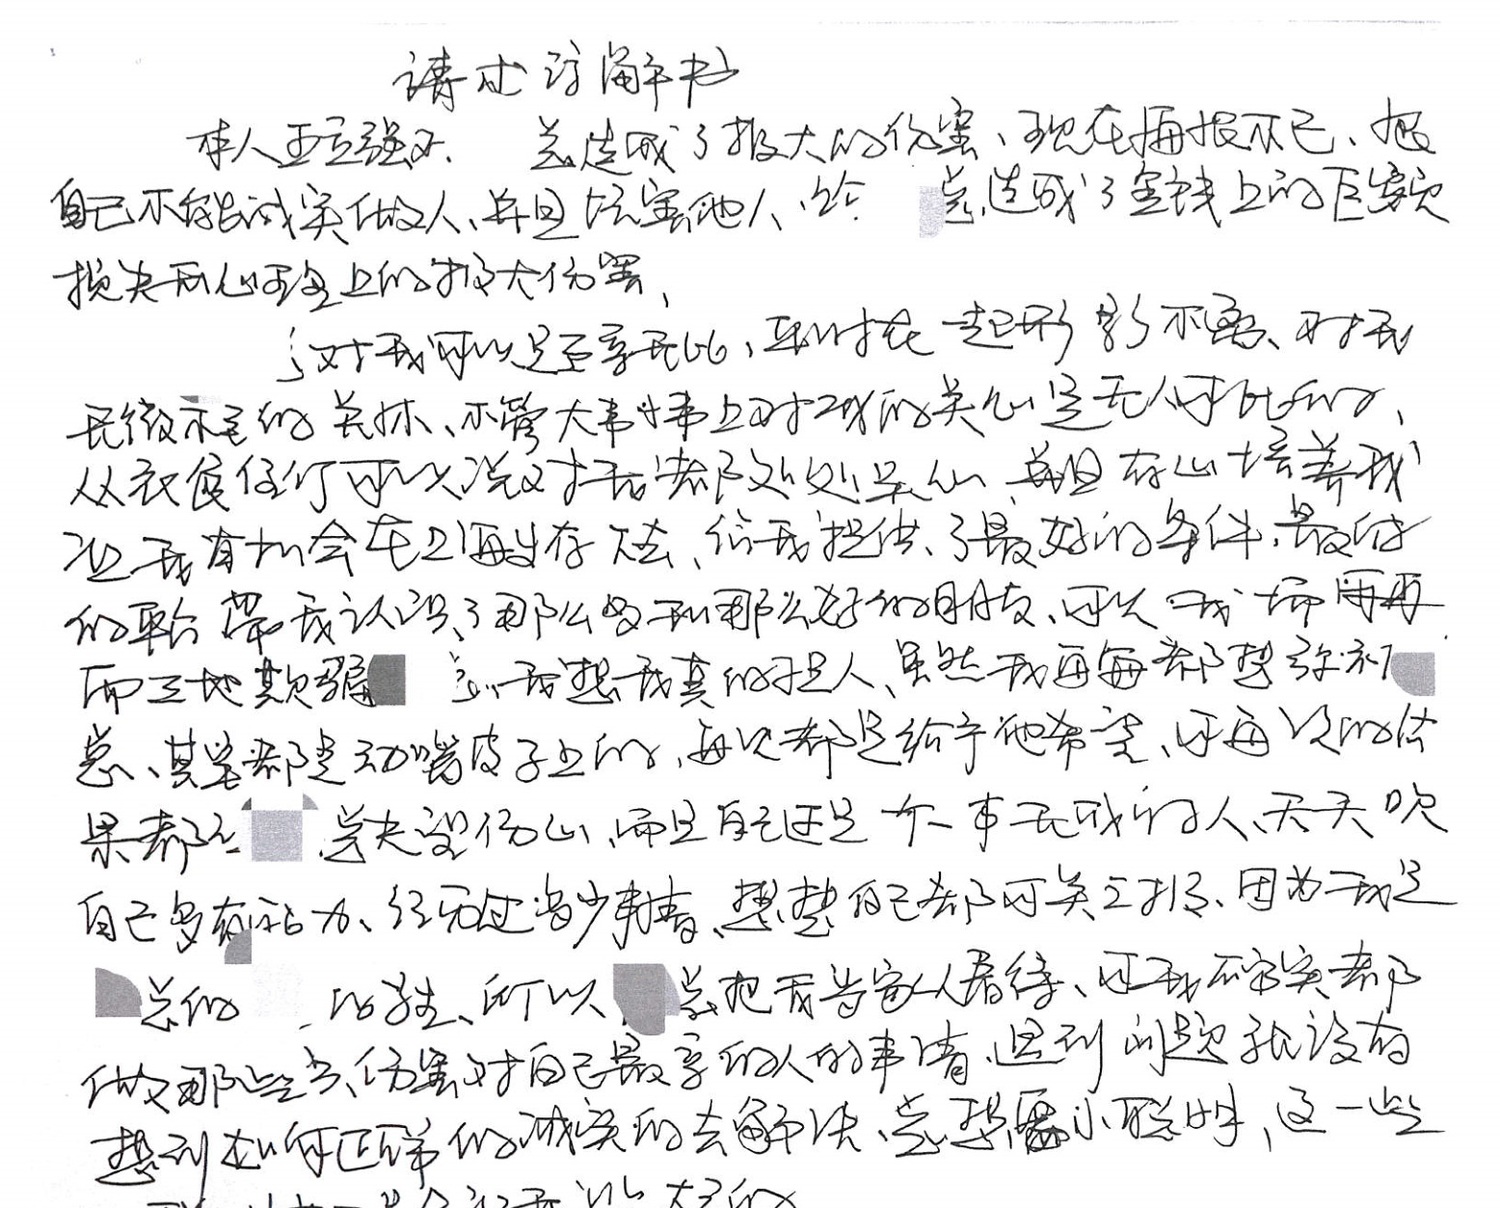 请求谅解书
本人王立强对 总造成了极大的伤害、现在悔恨不已、恨
自己不能诚实做人、并且坑害他人、给 总造成了金钱上的巨额
损失和心理上的极大伤害、
对我可以是至亲无比，平时在一起形影不离、对我
无微不至的关怀、不管大事小事上对我的关心是无人可比的、
从衣食住行可以说对我都处处关心、并且存心培养我
让我有机会在上海生存下去、给我提供了最好的条件、最好
的平台 带我认识了那么多和那么好的朋友、可以我一而再再
而三地欺骗 总、我想我真的不是人、虽然我每每都想弥补
总、其实都是动嘴皮子上的，每次都是给予他希望、可每次的结
果都让 总失望伤心、而且自己还是一个一事无成的人、天天吹
自己多有能力、经历过多少事情、想想自己都可笑之极、因为我是
总的 的学生、所以 总把我当家人看待、可我不诚实都
做那些 伤害对自己最亲的人的事情、遇到问题就没有
想到如何正确的诚实的去解决、总想耍小聪明、这一些